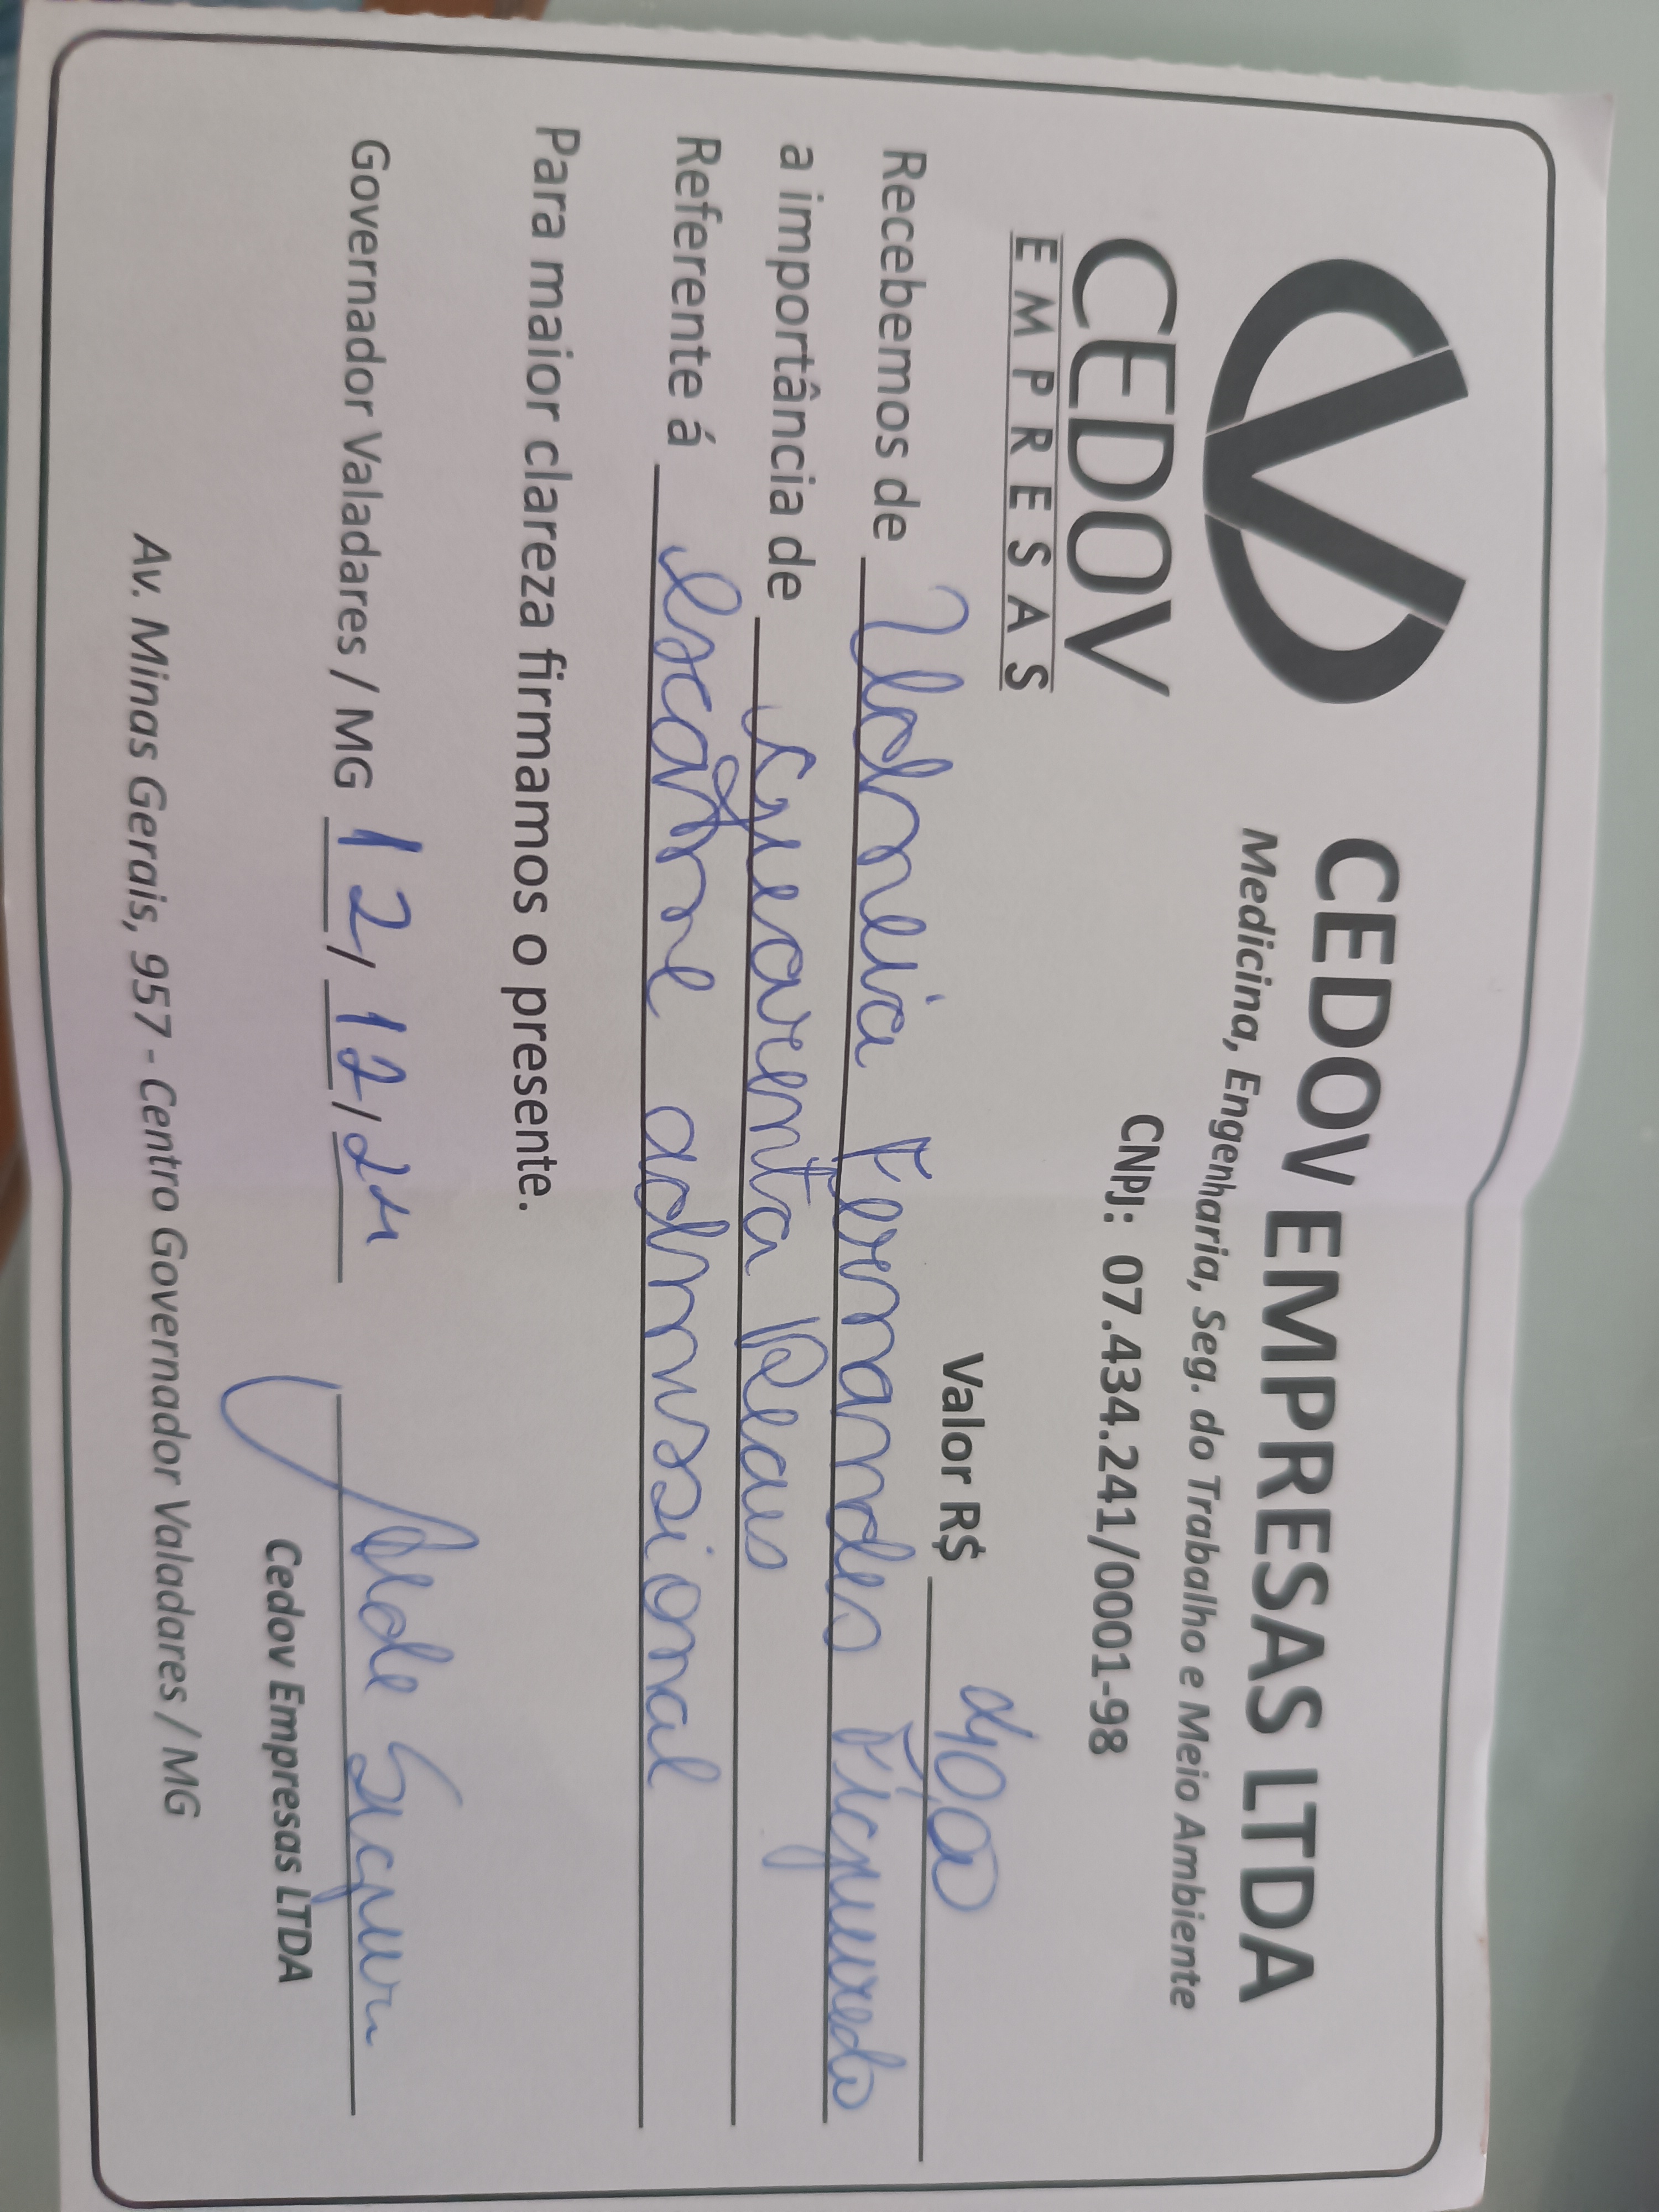 CEDOV
EMPRESAS
CEDOV EMPRESAS LTDA
Medicina, Engenharia, Seg. do Trabalho e Meio Ambiente
CNPJ: 07.434.241/0001-98
Valor R$ 40,00
Recebemos de Fernandes Figueiredo
a importância de Quarenta Reais
Referente á admissional
Para maior clareza firmamos o presente.
Governador Valadares / MG 12 / 12 / 24
Cedov Empresas LTDA
Av. Minas Gerais, 957 - Centro Governador Valadares / MG